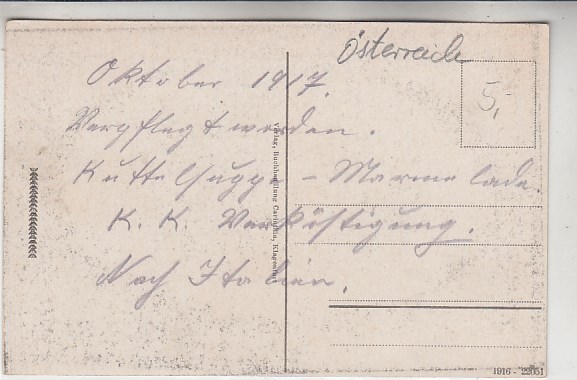 Österreich
Oktober 1917.
5,-
Verpflegt worden.
Kuttelsuppe - Marmelade.
K. K. Verköstigung.
Nach Italien.
Verlag, Buchhandlung Carinthia, Klagenfurt
1916 - 22051